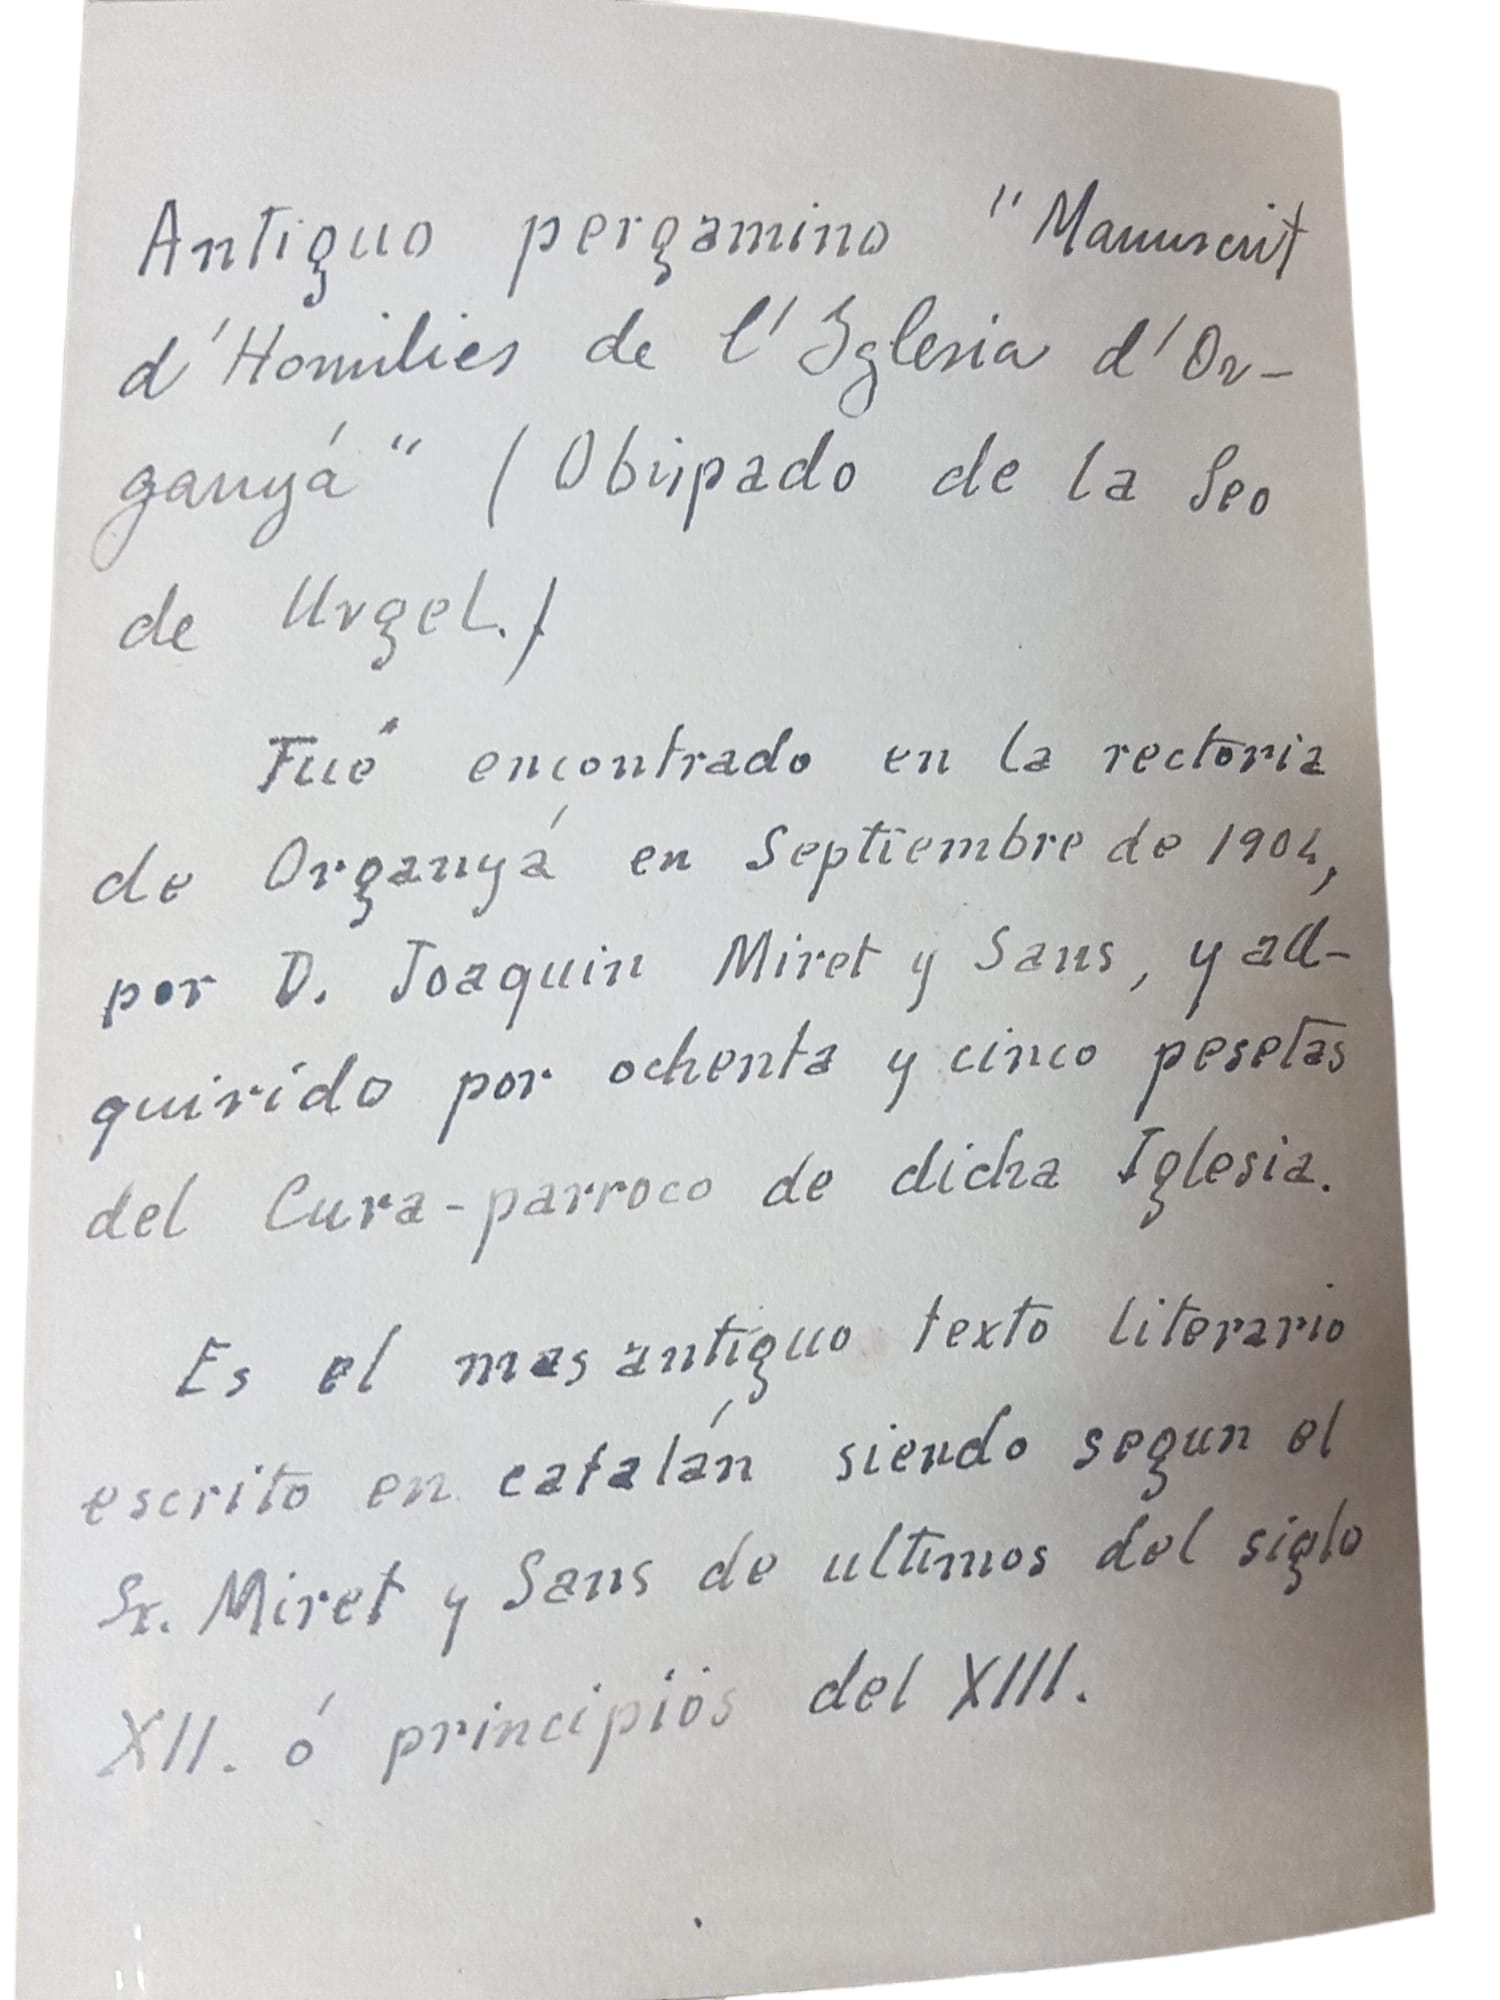 Antiguo pergamino "Manuscrit
d'Homilies de l'Iglesia d'Or-
ganyá" (Obispado de la Seo
de Urgel.)
Fué encontrado en la rectoria
de Organyá en Septiembre de 1904,
por D. Joaquin Miret y Sans, y ad-
quirido por ochenta y cinco pesetas
del Cura-parroco de dicha Iglesia.
Es el mas antiguo texto literario
escrito en catalán siendo segun el
Sr. Miret y Sans de ultimos del siglo
XII. ó principios del XIII.